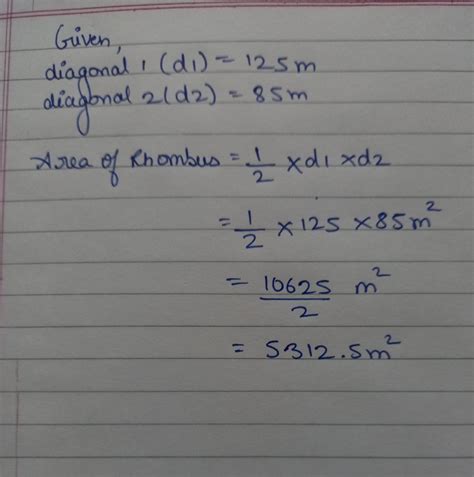 Given,
diagonal 1 (d1) = 125m
diagonal 2(d2) = 85m
Area of Rhombus = 1/2 × d1 × d2
= 1/2 × 125 × 85m²
= 10625/2 m²
= 5312.5m²